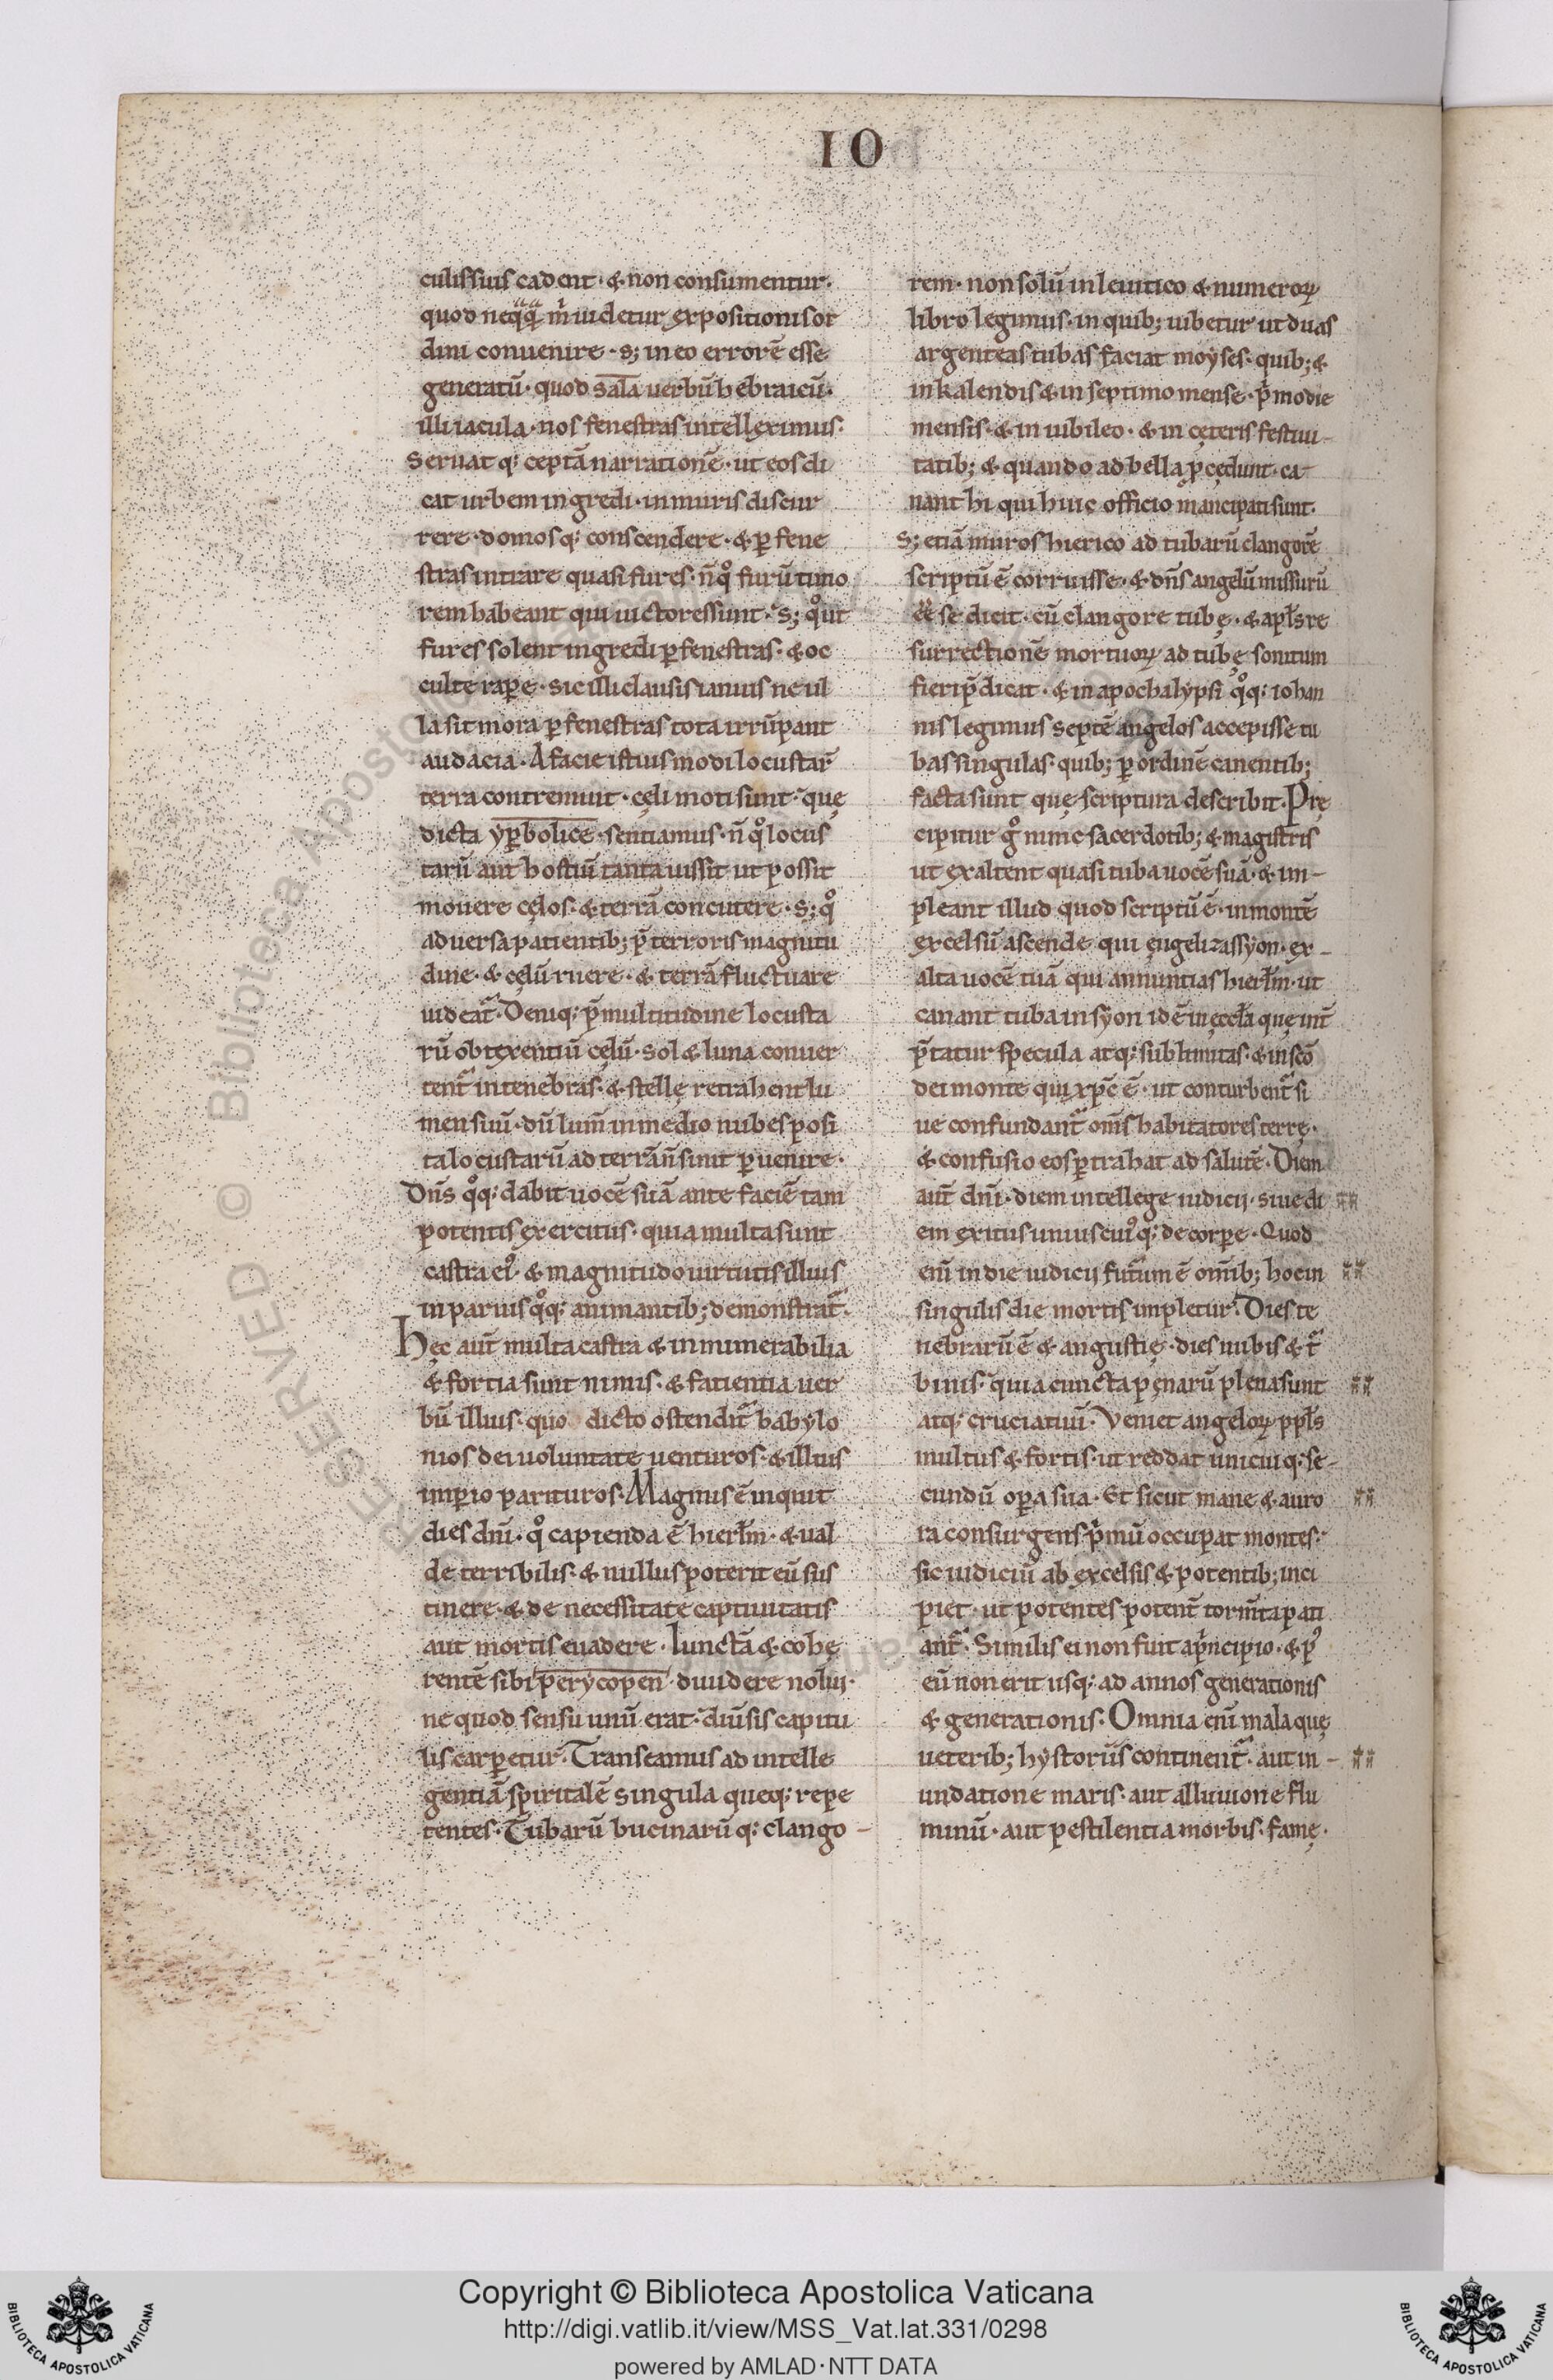 IO
culis suis cadent · & non consumentur ·
quod neqͣqͣ m̊ uidetur expositionis or
dini conuenire · S; in eo errorē esse
generatū · quod sala uerbū hebraicū ·
illi iacula · nos fenestras intelleximus ·
Seruat q; ceptā narrationē · ut eos di
cat urbem ingredi · in muris discur
rere · domosq; conscendere · & ꝑ fene
stras intrare quasi fures · n̄ qͦ furū timo
rem habeant qui uictores sunt · S; qͦ ut
fures solent ingredi ꝑ fenestras · & oc
culte raꝑe · sic illi clausis ianuis ne ul
la sit mora ꝑ fenestras tota irrūpant
audacia · A facie istius modi locustar̄
terra contremuit · cęli moti sunt · quę
dicta yꝑbolice · sentiamus · n̄ qͦ locus
tarū aut hostiū tanta uis sit ut possit
mouere cęlos · & terrā concutere · S; qͦ
aduersa patientib; p̄ terroris magnitu
dine · & cęlū ruere · & terrā fluctuare
uideat᷑ · Deniq; p̄ multitudine locusta
rū obtexentiū cęlū · sol & luna conuer
tent᷑ in tenebras · & stellę retrahent lu
men suū · dū lum̄ in medio nubes posi
ta locustarū ad terrā n̄ sinit ꝑuenire ·
Dn̄s qͦq; dabit uocē suā ante faciē tam
potentis exercitus · quia multa sunt
castra ei᷒ · & magnitudo uirtutis illius
in paruis qͦq; animantib; demonstrat᷑ ·
Hęc aut̄ multa castra & innumerabilia
& fortia sunt nimis · & fatientia uer
bū illius · quo dicto ostendit᷑ babylo
nios dei uoluntate uenturos · & illius
imꝑio parituros · Magnus ē inquit
dies dn̄i · qͦ capienda ē hierłm · & ual
de terribilis · & nullus poterit eū sus
tinere · & de necessitate captiuitatis
aut mortis euadere · Iunctā & cohę
rentē sibi perycopen · diuidere nolui ·
ne quod sensu unū erat · diūsis capitu
lis carꝑetur · Transeamus ad intelle
gentiā spiritalē singula queq; repe
tentes · Tubarū bucinarū q; clango -
rem · non solū in leuitico & numeroꝝ
libro legimus · in quib; iubetur ut duas
argenteas tubas faciat moyses · quib; &
in kalendis & in septimo mense · p̄mo die
mensis · & in iubileo · & in cęteris festiui -
tatib; & quando ad bella ꝓcedunt · ca -
nant hi qui huic officio mancipati sunt ·
S; etiā muros hierico ad tubarū clangorē
scriptū ē corruisse · & dn̄s angelū missurū
ēē se dicit · cū clangore tubę · & apłs re
surrectionē mortuoꝝ ad tubę sonitum
fieri p̄dicat · & in apochalypsi qͦq; iohan
nis legimus septē angelos accepisse tu
bas singulas · quib; ꝑ ordinē canentib;
facta sunt quę scriptura describit · Prę
cipitur gͦ nunc sacerdotib; & magistris
ut exaltent quasi tuba uocē suā · & im -
pleant illud quod scriptū ē · in montē
excelsū ascende qui ęuģelizas syon · ex -
alta uocē tuā qui annuntias hierłm · ut
canant tuba in syon id ē in ęccła quę int̄
p̄tatur specula atq; sublimitas · & in sc̄o
dei monte qui xp̄c ē · ut conturbent᷑ si
ue confundant᷑ om̄s habitatores terrę ·
& confusio eos ꝑtrahat ad salutē · Diem
aut̄ dn̄i · diem intellege iudicij · siue di
em exitus uniuscui᷒q; de corꝑe · Quod
eni in die iudicij fut᷑um ē om̄ib; hoc in
singulis die mortis impletur · Dies te
nebrarū ē & angustię · dies nubis & t᷑
binis · quia cuncta pęnarū plena sunt
atq; cruciatiuū · Veniet angeloꝝ ppłs
multus & fortis · ut reddat unicuiq; se -
cundū oꝑa sua · Et sicut mane & auro
ra consurgens p̄mū occupat montes ·
sic iudiciū ab excelsis & potentib; inci
piet · ut potentes potent̄ torm̄ta pati
ant᷑ · Similis ei non fuit a p̄ncipio · & p᷒
eū non erit usq; ad annos generationis
& generationis · Omnia eni mala quę
ueterib; hystoriis continent᷑ · aut in -
undatione maris · aut alluuione flu
minū · aut pestilentia morbis · famę ·
Copyright © Biblioteca Apostolica Vaticana
http://digi.vatlib.it/view/MSS_Vat.lat.331/0298
powered by AMLAD · NTT DATA
BIBLIOTECA APOSTOLICA VATICANA
BIBLIOTECA APOSTOLICA VATICANA